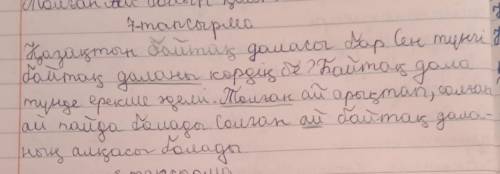 7-тапсырма
Қазақтын байтақ даласы бар Сен түнгі
байтақ даланы көрдің бе? Байтақ дала
түнде ерекше әдемі. Толған ай арықтап, солған
ай пайда болады Солған ай байтақ дала-
ның алқасы болады